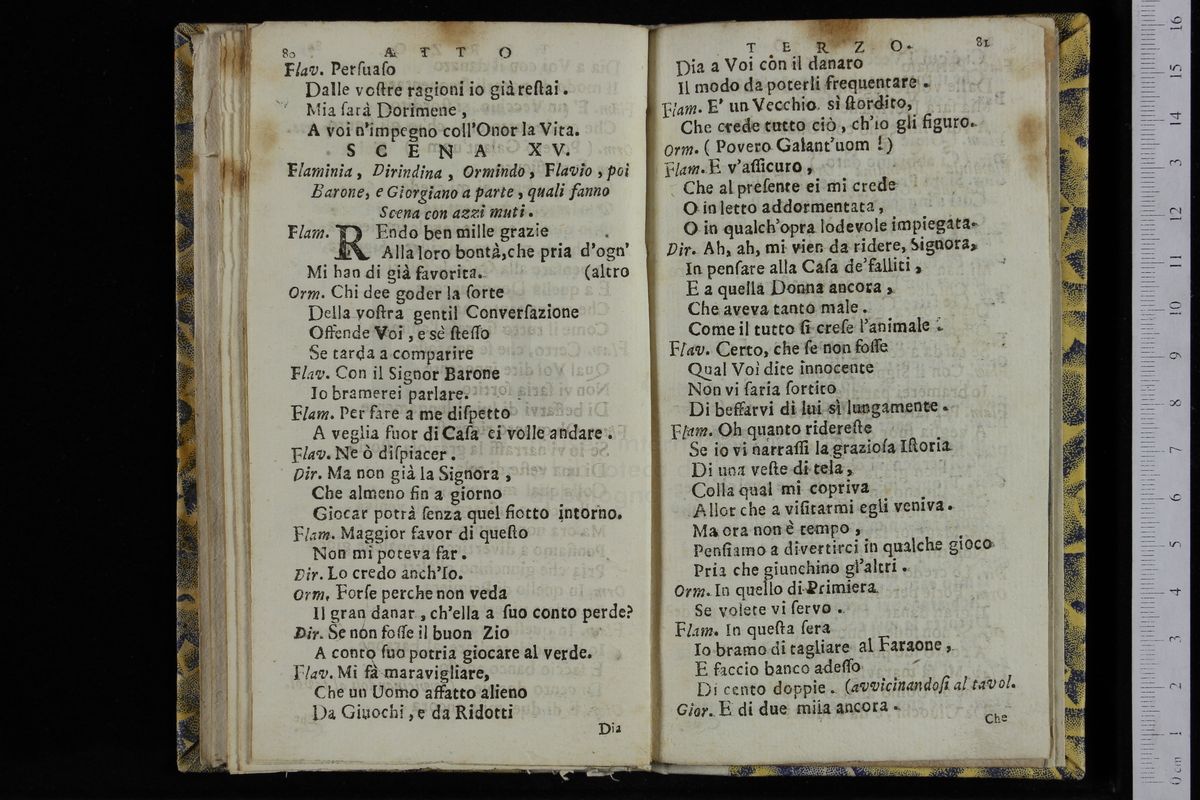 80 ATTO
Flav. Perſuaſo
Dalle voſtre ragioni io già reſtai.
Mia ſarà Dorimene,
A voi n'impegno coll'Onor la Vita.
SCENA XV.
Flaminia, Dirindina, Ormindo, Flavio, poi
Barone, e Giorgiano a parte, quali fanno
Scena con azzi muti.
Flam. REndo ben mille grazie
Alla loro bontà, che pria d'ogn'
Mi han di già favorita. (altro
Orm. Chi dee goder la ſorte
Della voſtra gentil Converſazione
Offende Voi, e sè ſteſſo
Se tarda a comparire
Flav. Con il Signor Barone
Io bramerei parlare.
Flam. Per fare a me diſpetto
A veglia fuor di Caſa ci volle andare.
Flav. Ne ò diſpiacer.
Dir. Ma non già la Signora,
Che almeno fin a giorno
Giocar potrà ſenza quel fiotto intorno.
Flam. Maggior favor di queſto
Non mi poteva far.
Dir. Lo credo anch'Io.
Orm. Forſe perche non veda
Il gran danar, ch'ella a ſuo conto perde?
Dir. Se non foſſe il buon Zio
A conto ſuo potria giocare al verde.
Flav. Mi fà maravigliare,
Che un Uomo affatto alieno
Da Giuochi, e da Ridotti
Dia
TERZO. 81
Dia a Voi còn il danaro
Il modo da poterli frequentare.
Flam. E' un Vecchio sì ſtordito,
Che crede tutto ciò, ch'io gli figuro.
Orm. (Povero Galant'uom!)
Flam. E v'aſſicuro,
Che al preſente ei mi crede
O in letto addormentata,
O in qualch'opra lodevole impiegata.
Dir. Ah, ah, mi vien da ridere, Signora,
In penſare alla Caſa de'falliti,
E a quella Donna ancora,
Che aveva tanto male.
Come il tutto ſi creſe l'animale.
Flav. Certo, che ſe non foſſe
Qual Voi dite innocente
Non vi ſaria ſortito
Di beffarvi di lui sì lungamente.
Flam. Oh quanto ridereſte
Se io vi narraſſi la grazioſa Iſtoria
Di una veſte di tela,
Colla qual mi copriva
Allor che a viſitarmi egli veniva.
Ma ora non è tempo,
Penſiamo a divertirci in qualche gioco
Pria che giunchino gl'altri.
Orm. In quello di Primiera
Se volete vi ſervo.
Flam. In queſta ſera
Io bramo di tagliare al Faraone,
E faccio banco adeſſo
Di cento doppie. (avvicinandoſi al tavol.
Gior. E di due mila ancora.
Che
16
15
14
13
12
11
10
9
8
7
6
5
4
3
2
1
0 cm